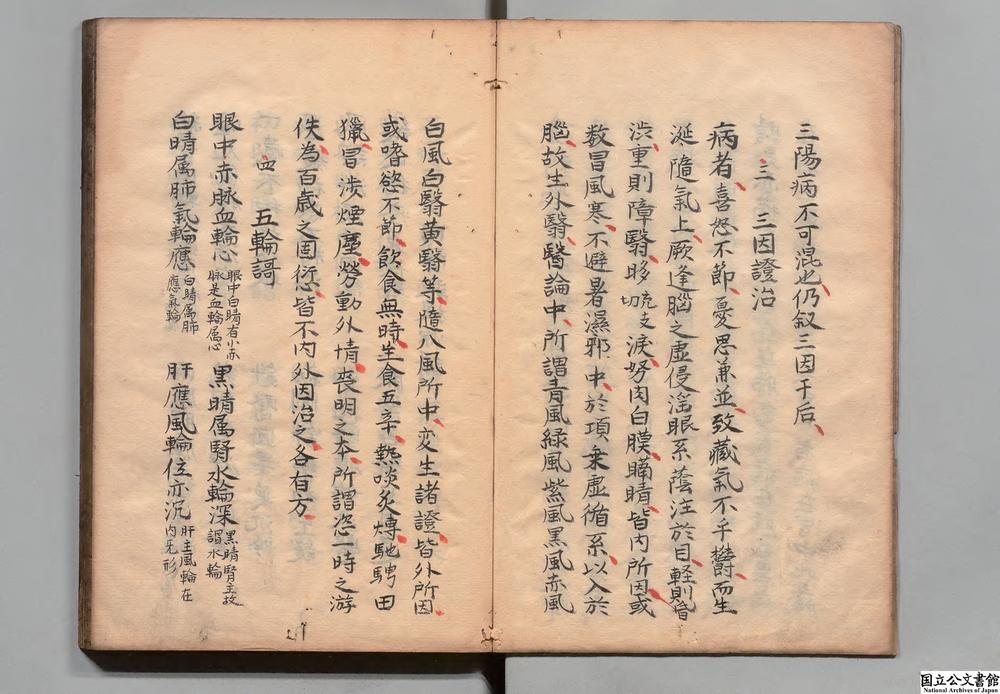 三陽病不可混也仍叙三因于后
三 三因證治
病者喜怒不節憂思兼並致藏氣不平欝而生
涎隨氣上厥逢腦之虛侵淫眼系蔭注於目輕則昏
渋重則障翳眵𥇀切支淚努肉白膜瞞睛皆内所因或
数冒風寒不避暑濕邪中於項乗虛循系以入於
腦故生外翳醫論中所謂青風緑風紫風黒風赤風
白風白翳黄翳等隨八風所中変生諸證皆外所因
或嗜慾不節飲食無時生食五辛熱啖炙煿馳騁田
獵冒渉煙塵勞動外情喪明之本所謂恣一時之游
佚為百歳之固愆皆不内外因治之各有方
四 五輪謌
眼中赤脉血輪心 眼中白睛有小赤脉是血輪属心 黒睛属腎水輪深 黒睛腎主故謂水輪
白睛属肺氣輪應 白睛属肺應氣輪 肝應風輪位亦沉 肝主風輪在内旡形
国立公文書館
National Archives of Japan